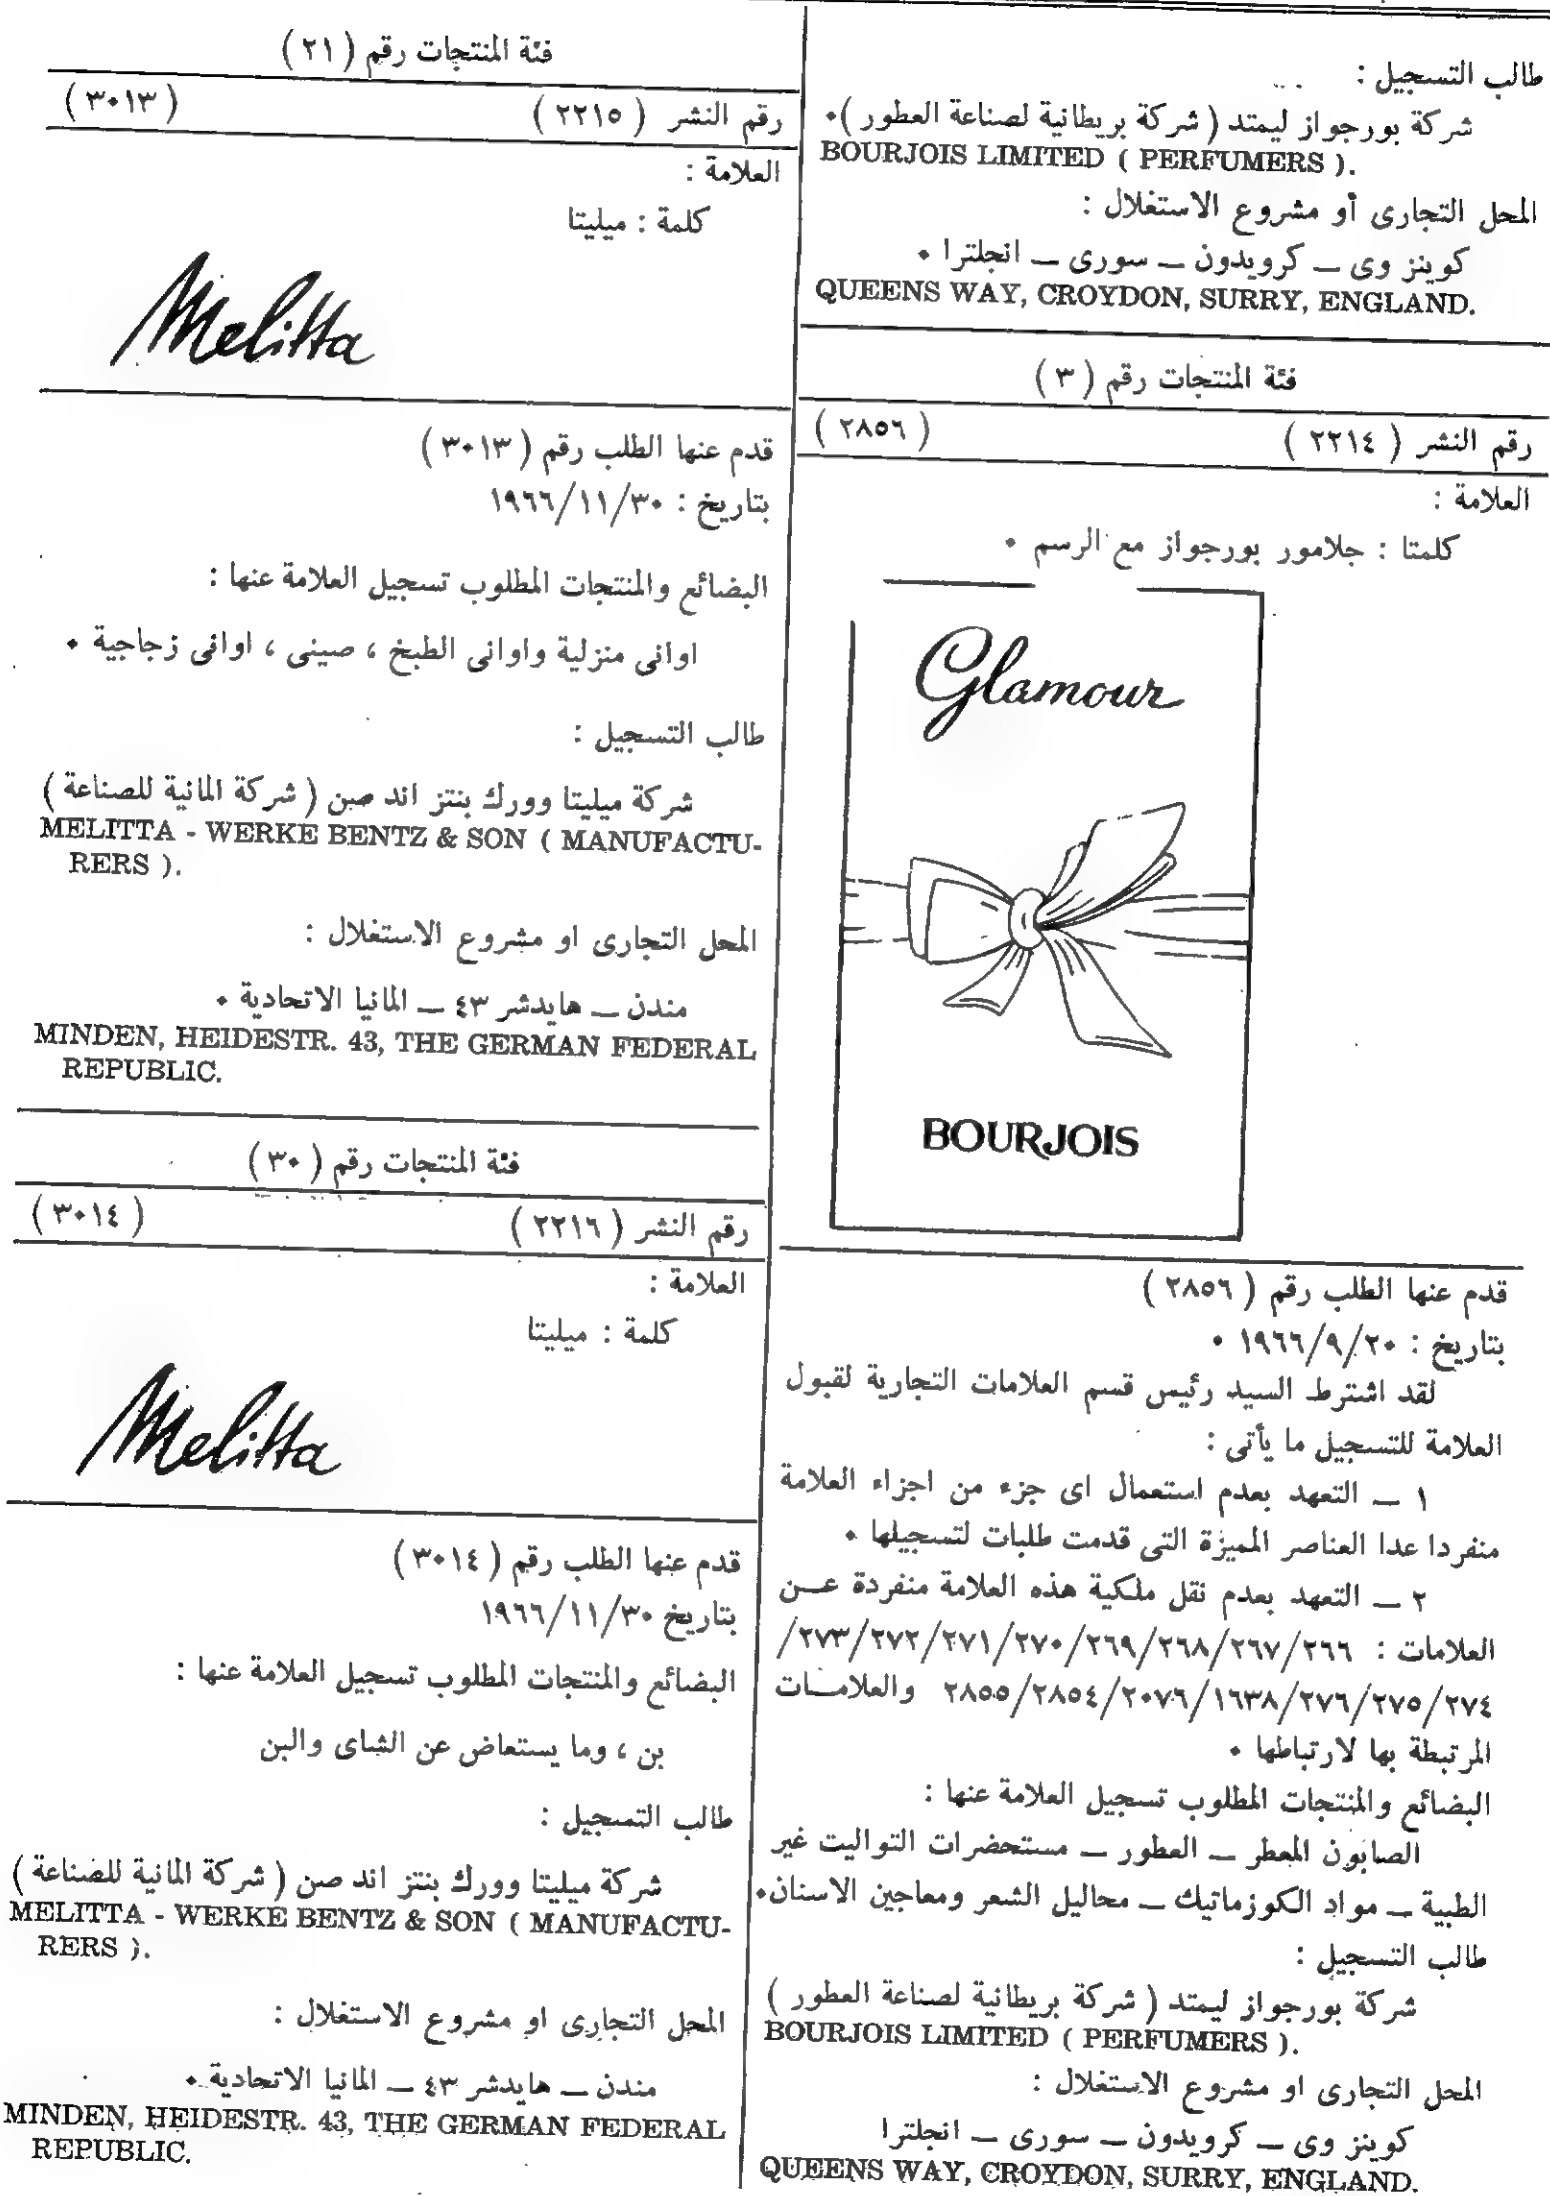 طالب التسجيل :
شركة بورجواز ليمتد ( شركة بريطانية لصناعة العطور )٠
BOURJOIS LIMITED ( PERFUMERS ).
المحل التجارى أو مشروع الاستغلال :
كوينز وى ــ كرويدون ــ سورى ــ انجلترا ٠
QUEENS WAY, CROYDON, SURRY, ENGLAND.
فئة المنتجات رقم ( ٣ )
رقم النشر ( ٢٢١٤ ) ( ٢٨٥٦ )
العلامة :
كلمتا : جلامور بورجواز مع الرسم ٠
Glamour
BOURJOIS
قدم عنها الطلب رقم ( ٢٨٥٦ )
بتاريخ : ١٩٦٦/٩/٢٠ ٠
لقد اشترط السيد رئيس قسم العلامات التجارية لقبول
العلامة للتسجيل ما يأتى :
١ ــ التعهد بعدم استعمال اى جزء من اجزاء العلامة
منفردا عدا العناصر المميزة التى قدمت طلبات لتسجيلها ٠
٢ ــ التعهد بعدم نقل ملكية هذه العلامة منفردة عــن
العلامات : ٢٦٦/٢٦٧/٢٦٨/٢٦٩/٢٧٠/٢٧١/٢٧٢/٢٧٣/
٢٧٤/٢٧٥/٢٧٦/١٦٣٨/٢٠٧٦/٢٨٥٤/٢٨٥٥ والعلامــات
المرتبطة بها لارتباطها ٠
البضائع والمنتجات المطلوب تسجيل العلامة عنها :
الصابون المعطر ــ العطور ــ مستحضرات التواليت غير
الطبية ــ مواد الكوزماتيك ــ محاليل الشعر ومعاجين الاسنان٠
طالب التسجيل :
شركة بورجواز ليمتد ( شركة بريطانية لصناعة العطور )
BOURJOIS LIMITED ( PERFUMERS ).
المحل التجارى او مشروع الاستغلال :
كوينز وى ــ كرويدون ــ سورى ــ انجلترا
QUEENS WAY, CROYDON, SURRY, ENGLAND.
فئة المنتجات رقم ( ٢١ )
رقم النشر ( ٢٢١٥ ) ( ٣٠١٣ )
العلامة :
كلمة : ميليتا
Melitta
قدم عنها الطلب رقم ( ٣٠١٣ )
بتاريخ : ١٩٦٦/١١/٣٠
البضائع والمنتجات المطلوب تسجيل العلامة عنها :
اوانى منزلية واوانى الطبخ ، صينى ، اوانى زجاجية ٠
طالب التسجيل :
شركة ميليتا وورك بنتز اند صن ( شركة المانية للصناعة )
MELITTA - WERKE BENTZ & SON ( MANUFACTU-
RERS ).
المحل التجارى او مشروع الاستغلال :
مندن ــ هايدشر ٤٣ ــ المانيا الاتحادية ٠
MINDEN, HEIDESTR. 43, THE GERMAN FEDERAL
REPUBLIC.
فئة المنتجات رقم ( ٣٠ )
رقم النشر ( ٢٢١٦ ) ( ٣٠١٤ )
العلامة :
كلمة : ميليتا
Melitta
قدم عنها الطلب رقم ( ٣٠١٤ )
بتاريخ ١٩٦٦/١١/٣٠
البضائع والمنتجات المطلوب تسجيل العلامة عنها :
بن ، وما يستعاض عن الشاى والبن
طالب التسجيل :
شركة ميليتا وورك بنتز اند صن ( شركة المانية للصناعة )
MELITTA - WERKE BENTZ & SON ( MANUFACTU-
RERS ).
المحل التجارى او مشروع الاستغلال :
مندن ــ هايدشر ٤٣ ــ المانيا الاتحادية ٠
MINDEN, HEIDESTR. 43, THE GERMAN FEDERAL
REPUBLIC.